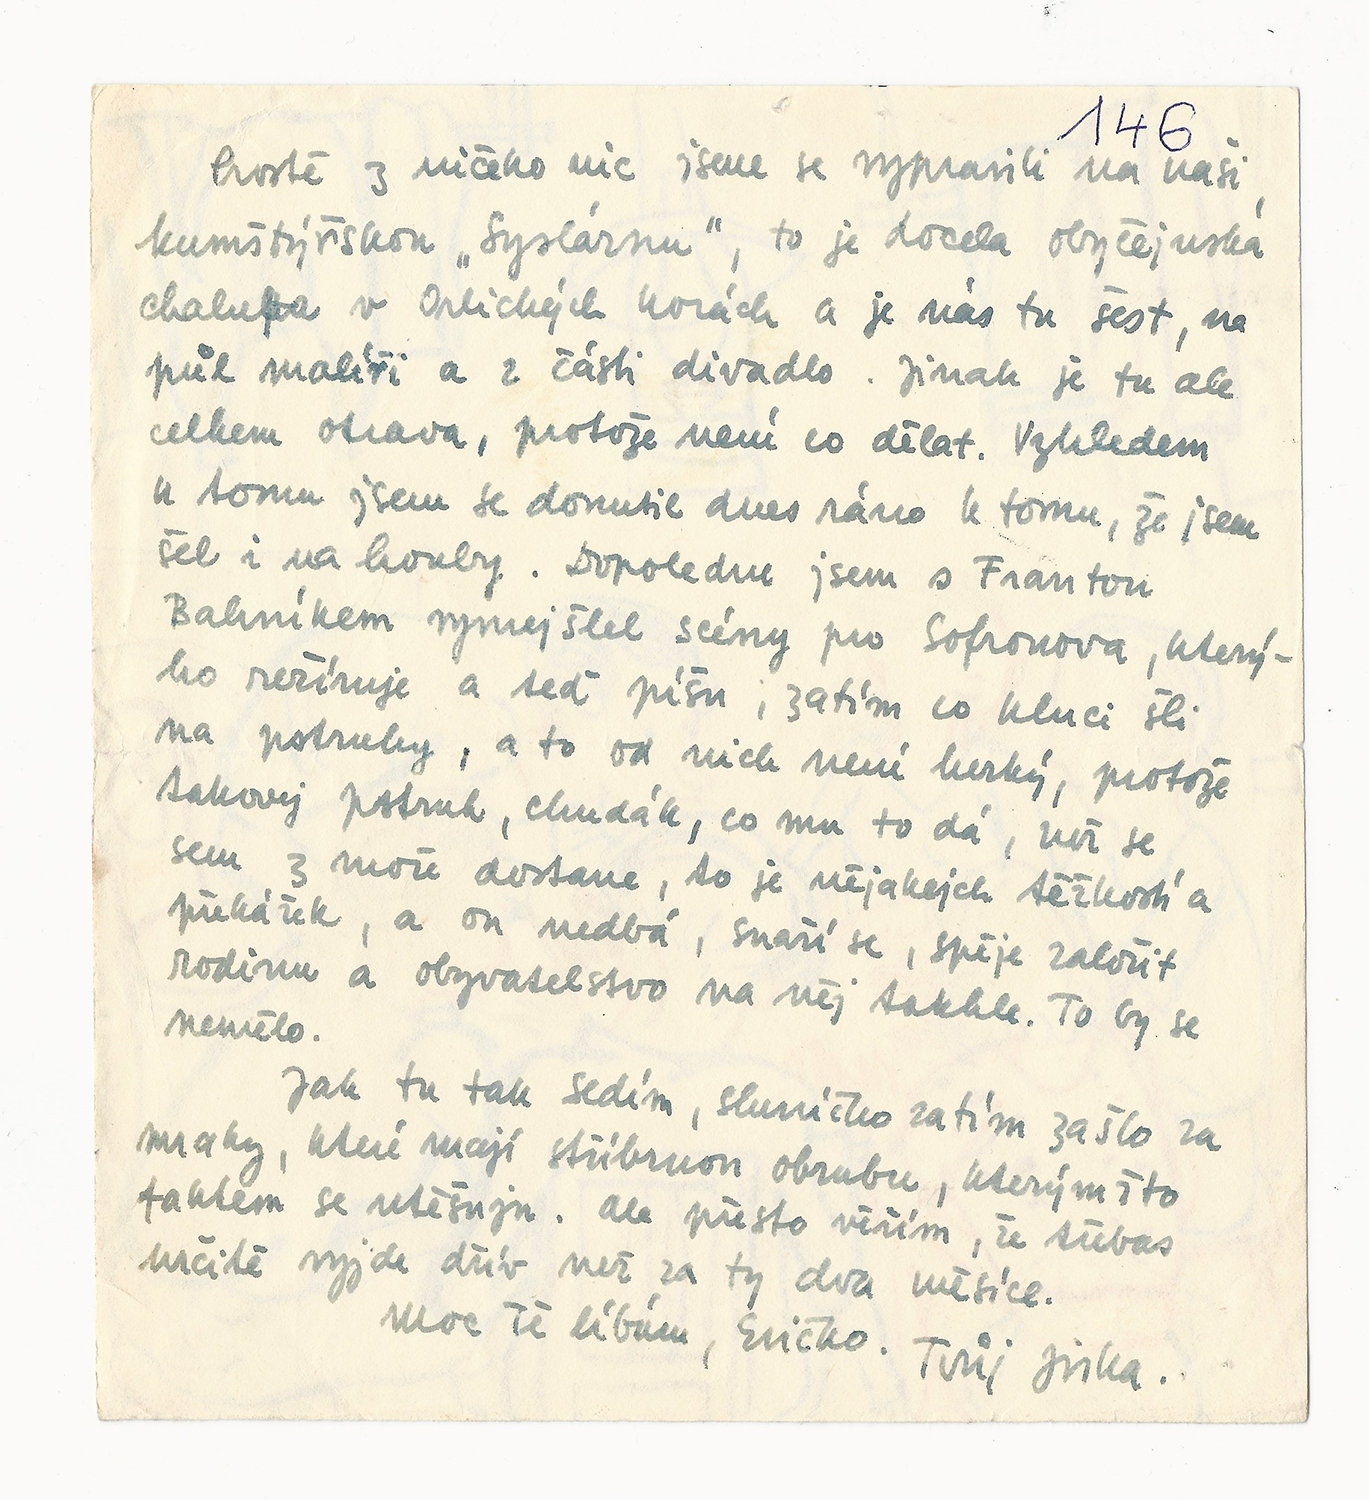 146
Prostě z ničeho nic jsme se vypravili na naši
kumštýřskou „Syslárnu“, to je docela obyčejnská
chalupa v Orlických horách a je nás tu šest, na
půl malíři a z části divadlo. Jinak je tu ale
celkem otrava, protože není co dělat. Vzhledem
k tomu jsem se donutil dnes ráno k tomu, že jsem
šel i na houby. Dopoledne jsem s Frantou
Bahníkem vymejšlel scény pro Sofronova, který-
ho režíruje a teď píšu, zatím co kluci šli
na pstruhy, a to od nich není hezký, protože
takovej pstruh, chudák, co mu to dá, než se
sem z moře dostane, to je nějakejch těžkostí a
překážek, a on nedbá, snaží se, spěje založit
rodinu a obyvatelstvo na něj takhle. To by se
nemělo.
Jak tu tak sedím, sluníčko zatím zašlo za
mraky, které mají stříbrnou obrubu, kterýmžto
faktem se utěšuju. Ale přesto věřím, že třebas
určitě vyjde dřív než za ty dva měsíce.
Moc Tě líbám, Evičko. Tvůj Jirka.